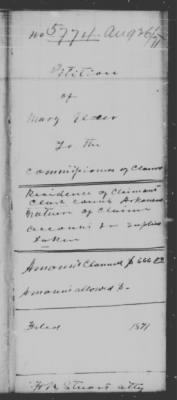 No 5774 Aug 26/71
Petition
of
Mary
To the
Commissioners of Claims
Residence of Claimant
Clark County Arkansas
Nature of Claim
account for supplies
taken
Amount Claimed $ 666
Amount allowed $
Filed 1871
Stuart atty